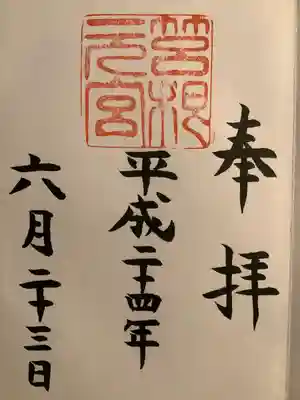 奉拝
箱根
元宮
平成二十四年
六月二十三日